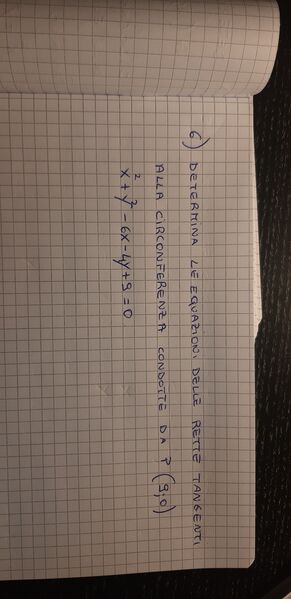 6) DETERMINA LE EQUAZIONI DELLE RETTE TANGENTI
ALLA CIRCONFERENZA CONDOTTE DA P (9;0)
x² + y² - 6x - 4y + 9 = 0